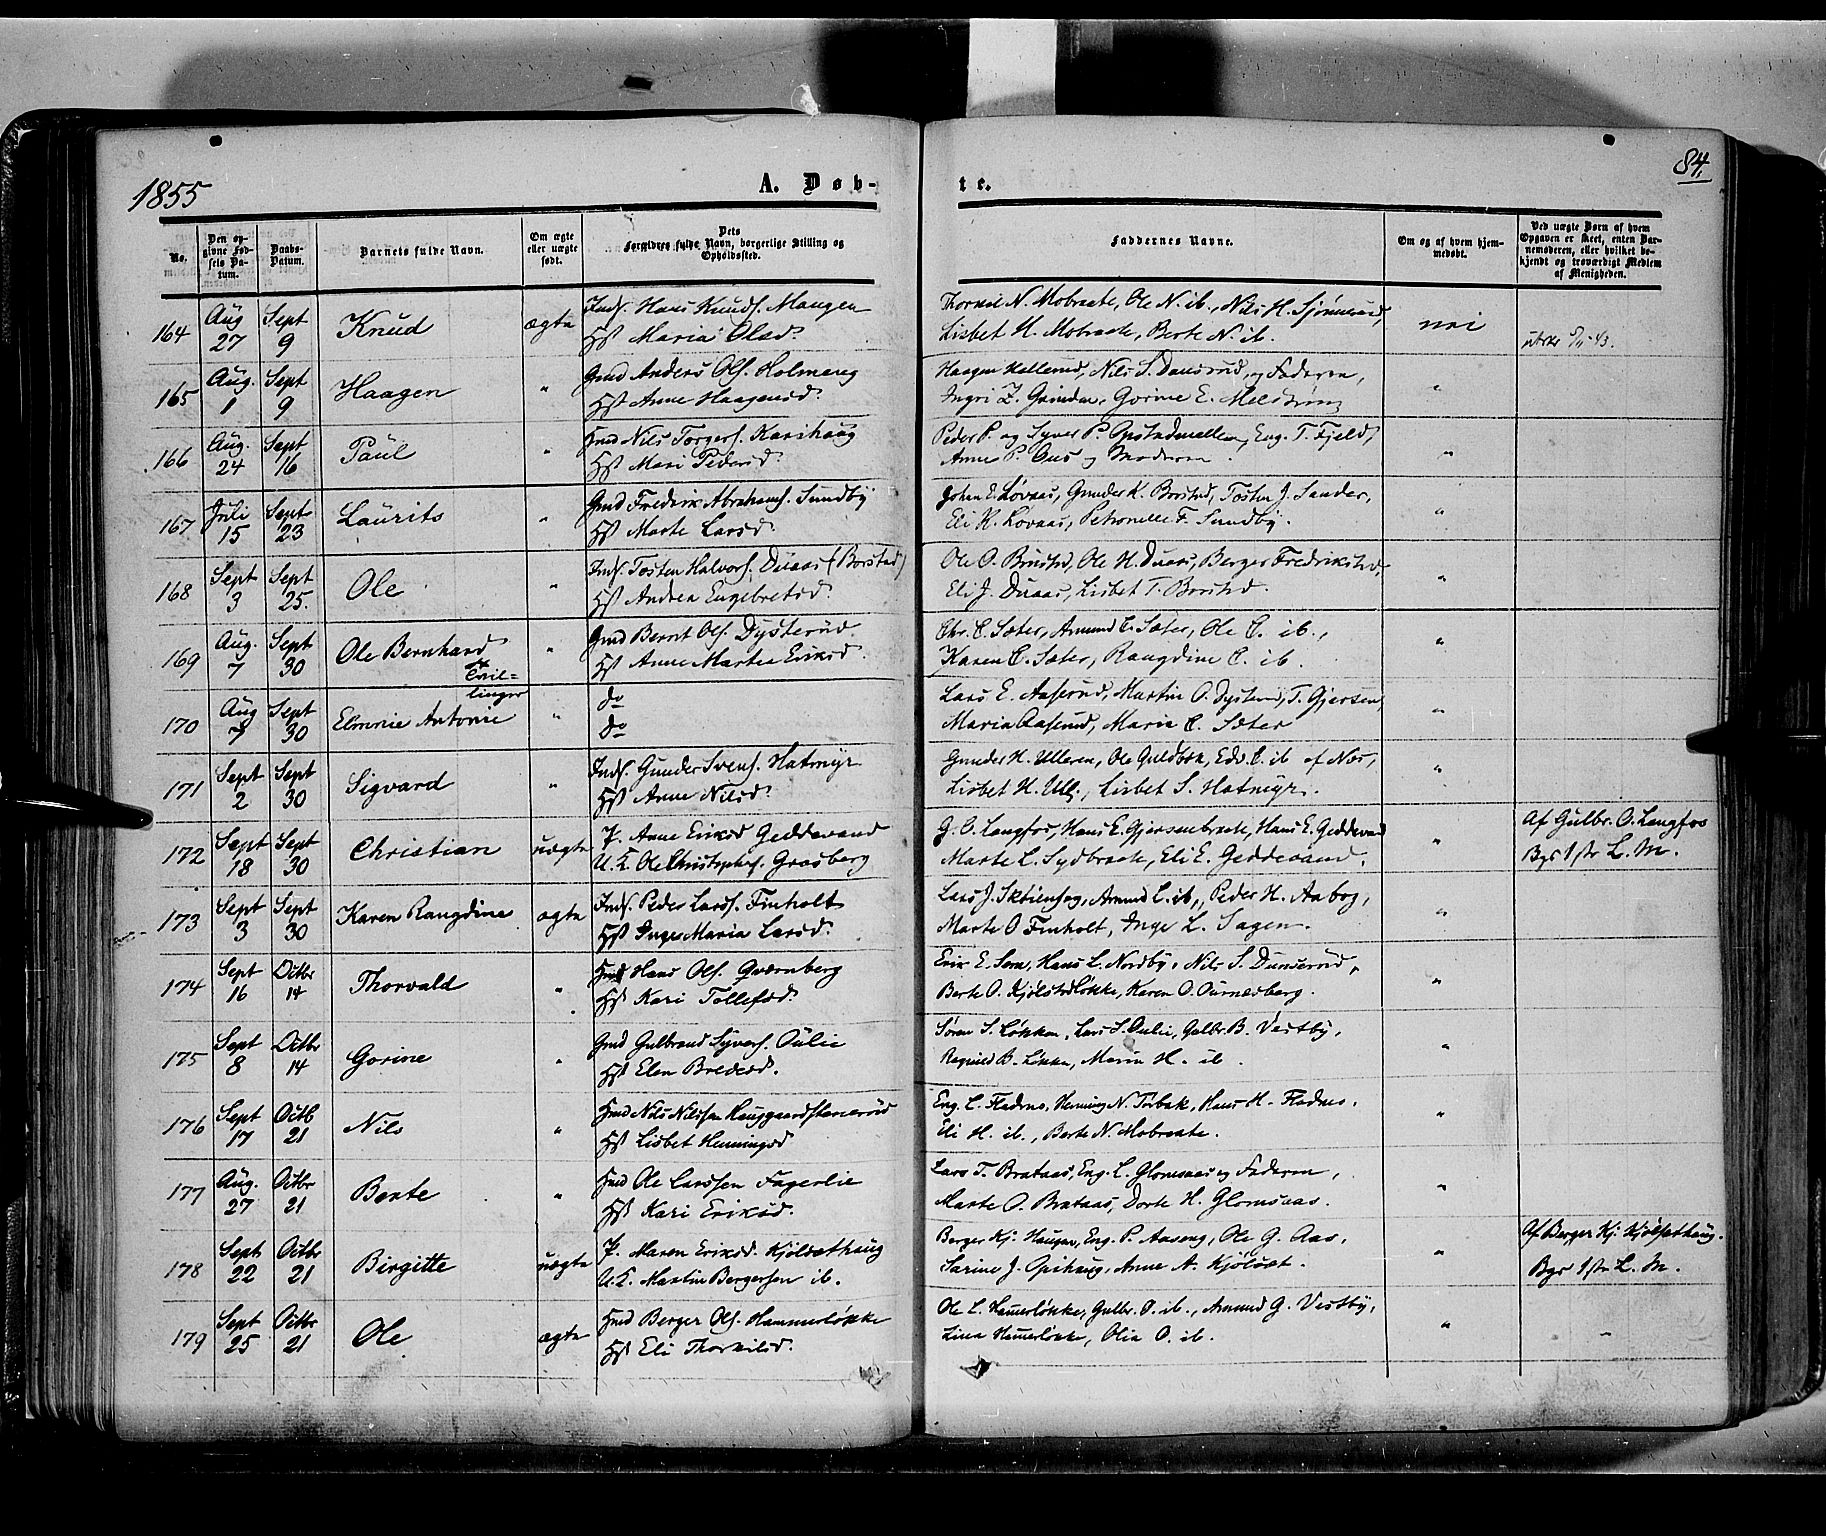 1855
A. Døb-
te.
84.
No.
Den op-
givne Fød-
sels Da-
tum.
Daabs-
Datum.
Barnets fulde Navn.
Om ægte
eller uægte
født.
Dets
Forældres fulde Navn, borgerlige Stilling og
Opholdssted.
Faddernes Navne.
Om og af hvem hjem-
medøbt.
Ved uægte Børn af hvem
Opgaven er skeet, enten Bar-
nemoderen, eller hvilket be-
kjendt og troværdigt Medlem
af Menigheden.
164 Aug 27 Sept 9 Knud ægte
Inds. Hans Knuds. Maugen
Hst Maria Olsd.
N. Mobraate, Ole N. ib., Nils H.
Lisbet H. Mobraate, Berte N. ib.
nei
165 Aug. 1 Sept 9 Haagen "
Gmd Anders Ols. Holmeng
Hst Anne Haagensd.
Haagen Hellerud, Nils S. Dunserud, og Faderen,
Ingri Z. Grinder, Gorine E. Melstrøm
"
166 Aug. 24 Sept 16 Paul "
Hmd Nils Torgers. Karishaug
Hst Mari Pedersd.
Peder P. og Syver P. Opstadmellem, Eng. T. Fjeld,
Anne P. Aus og Moderen.
"
167 Juli 15 Sept 23 Laurits "
Gmd Fredrik Abrahams. Sundby
Hst Marte Larsd.
Johan E. Løvaas, Gunder K. Borstad, Tosten J. Sander,
Eli K. Lovaas, Petronelle F. Sundby.
"
168 Sept 3 Sept 25. Ole "
Inds. Tosten Halvors. Duaas (Borstad)
Hst Andrea Engebretsd.
Ole O. Brustad, Ole H. Duaas, Berger Fredrikstad,
Eli J. Duaas, Lisbet T. Borstad.
"
169 Aug. 7 Sept 30 Ole Bernhard "
Tvil-
linger
Gmd Bernt Ols. Dysterud.
Hst Anne Martea Eriksd.
Chr. C. Sæter, Amund C. Sæter, Ole C. ib.,
Karen C. Sæter, Rangdine C. ib.
"
170 Aug 7 Sept 30 Elmnie Antonie "
do
do
Lars E. Aaserud, Martin O. Dysterud, T. Gjersen,
Maria Aaserud, Maria C. Sæter
"
171 Sept 2 Sept 30 Sigvard "
Inds. Gunder Svens. Hatmyr
Hst Anne Nilsd.
Gunder H. Ulleren, Ole Guldbak, Edv. C. ib af Næs,
Lisbet H. Ull., Lisbet S. Hatmyr.
"
172 Sept 18 Sept 30 Christian uægte
P. Anne Eriksd Geddevand
U. K. Ole Christophers. Grasberg
G. O. Langfos, Hans E. Gjersenbraate, Hans E. Geddevand
Marte L. Sydbraate, Eli E. Geddevand.
"
Af Gulbr. O. Langfos
Bgs 1ste L. M.
173 Sept 3 Sept 30 Karen Rangdine ægte
Inds. Peder Lars. Finholt
Hst Inge Maria Larsd.
Lars J. Sktiensag, Amund L. ib., Peder H. Aabog,
Marte O Finholt, Inge L. Sagen.
"
174 Sept 16 Octbr 14 Thorvald "
Hmd Hans Ols. Qværnberg
Hst Kari Tollefsd.
Erik E. Sem, Hans L. Nordby, Nils S. Dunserud,
Berte O. Kjølstadløkke, Karen O. Ournesberg.
"
175 Sept 8 Octbr 14 Gorine "
Gmd Gulbrand Syvers. Oulie
Hst Elen Bredesd.
Søren S. Løkken, Lars S. Oulie, Gulbr. B. Vestby,
Ragnild B. Løkken, Maria H. ib.
"
176 Sept 17 Octb 21 Nils "
Hmd Nils Nilsen Haugaardstenerud
Hst Lisbet Henningsd
Eng. L. Fladnes, Henning N. Torbak, Hans H. Fladnes,
Eli H. ib., Berte N. Mobraate.
"
177 Aug. 27 Octbr 21 Berte "
Hmd Ole Larssen Fagerlie
Hst Kari Eriksd.
Lars T. Brataas, Eng. L. Glomsaas og Faderen,
Marte O. Brataas, Dorte H. Glomsaas.
"
178 Sept 22 Octbr 21 Birgitte uægte
P. Maren Eriksd. Kjølsethaug
U. K. Martin Bergersen ib.
Berger Kj. Haugen, Eng. P. Aaseng, Ole G. Aas,
Sarine J. Opihaug, Anne A. Kjølset.
"
Af Berger Kj. Kjølsethaug.
Bgs 1ste L. M.
179 Sept 25 Octbr 21 Ole ægte
Hmd Berger Ols. Hammerløkke
Hst Eli Thorkilsd.
Ole L. Hamerløkke, Gulbr. O. ib., Amund G. Vestby,
Lina Hamerløkke, Olia O. ib.
"
"